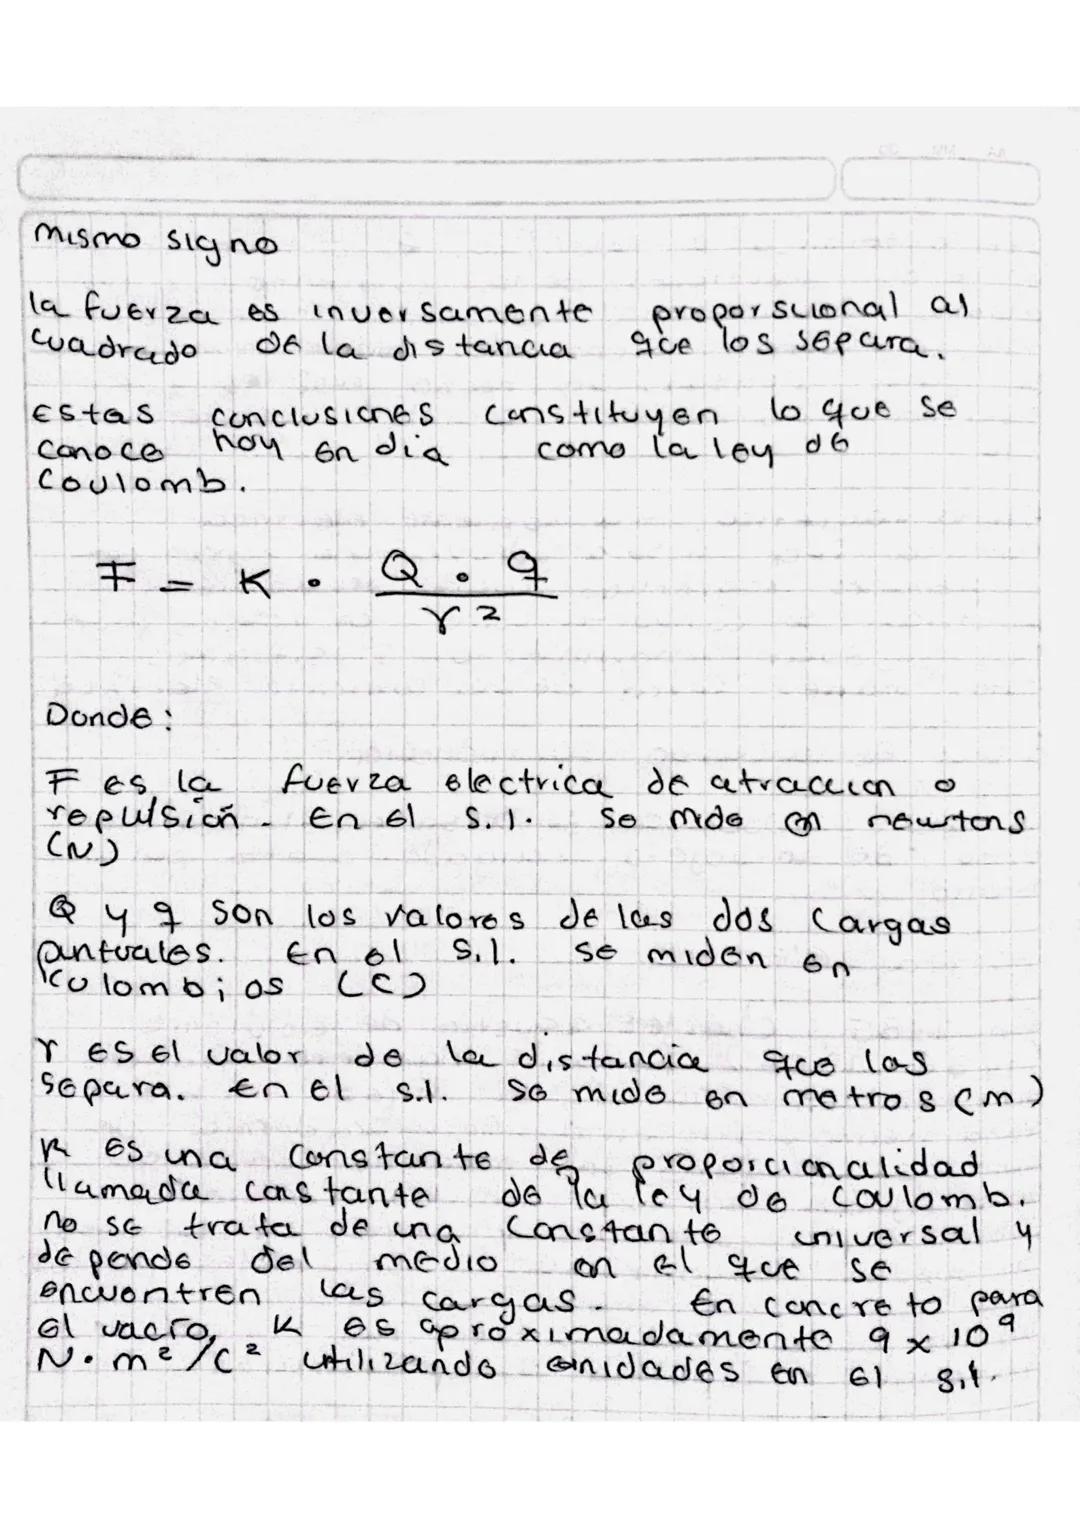 mismo signo
la fuerza es inversamente proporsional al
cuadrado de la distancia que los separa.
Estas conclusiones constituyen lo que se
conoce hoy en dia como la ley de
Coulomb.
F = K · Q · q / r²
Donde:
F es la fuerza electrica de atraccion o
repulsión. En el S.I. se mide en newtons
(N)
Q y q son los valores de las dos cargas
puntuales. En el S.I. se miden en
culombios (C)
r es el valor de la distancia que las
separa. En el s.I. se mide en metros (m)
K es una constante de proporcionalidad
llamada constante de la ley de Coulomb.
no se trata de una constante universal y
depende del medio en el que se
encuentren las cargas. En concreto para
el vacío, K es aproximadamente 9 x 10⁹
N·m²/C² utilizando unidades en el S.I.